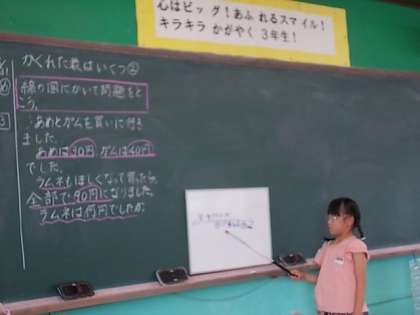 心はビッグ！あふれるスマイル！
キラキラ かがやく 3年生！
かくれた数はいくつ②
線の図にかいて問題をと
こう。
あめとガムを買いに行き
ました。
あめは30円、ガムは40円
でした。
ラムネもほしくなって買ったら、
全部で90円になりました。
ラムネは何円でしたか。